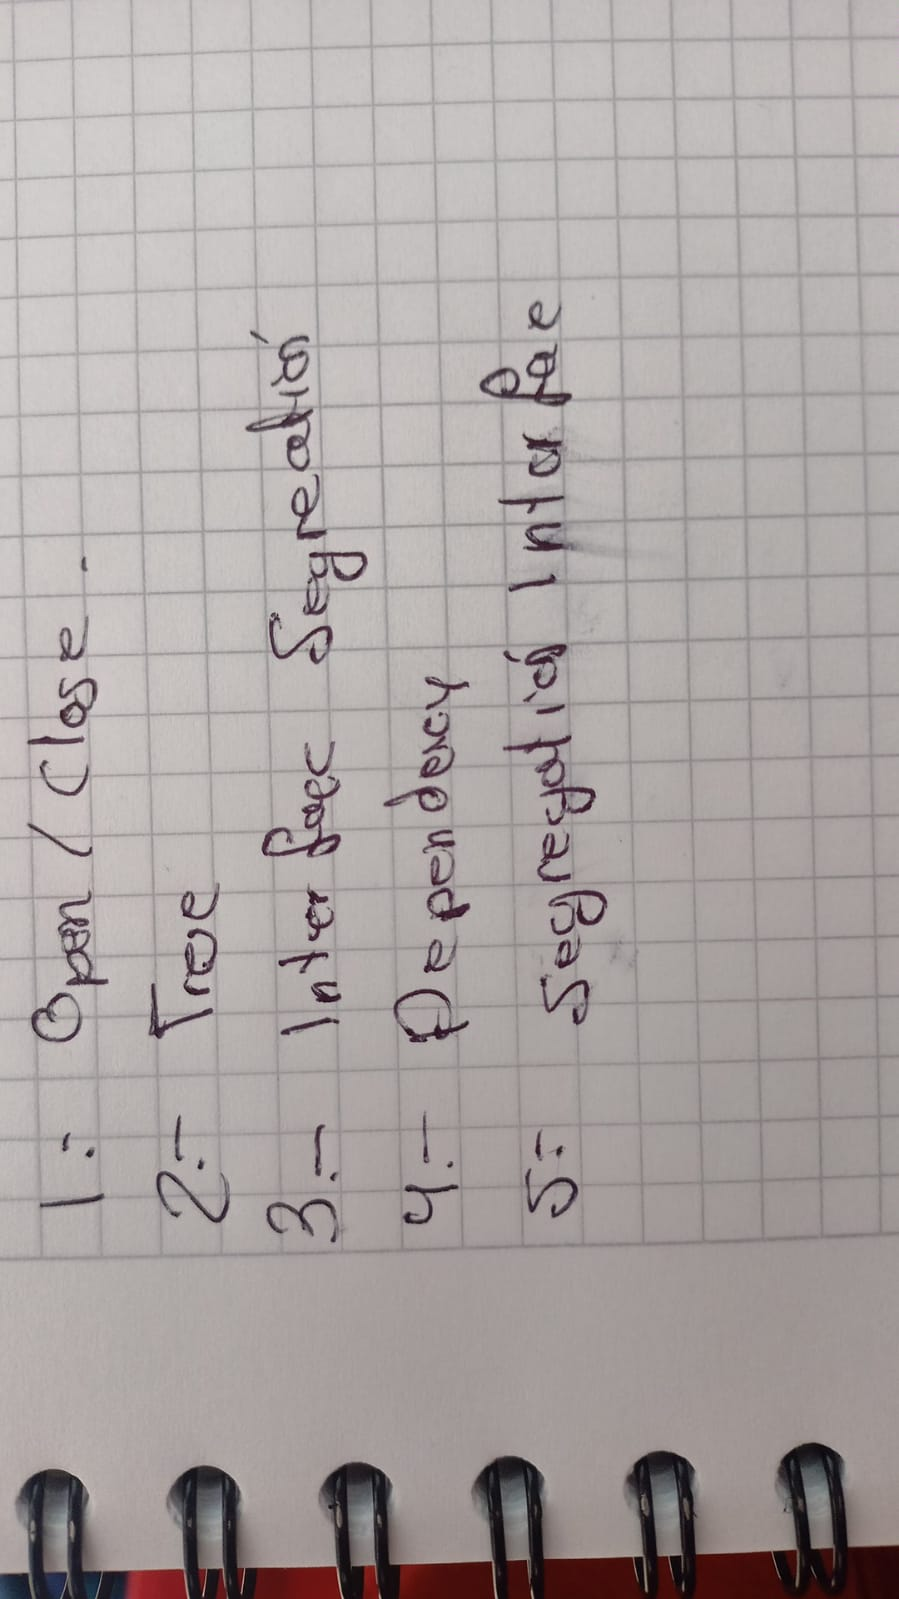 1.- Open / Close.
2.- True
3.- Interfaec Segreation
4.- Dependency
5.- Segregatión Interfae